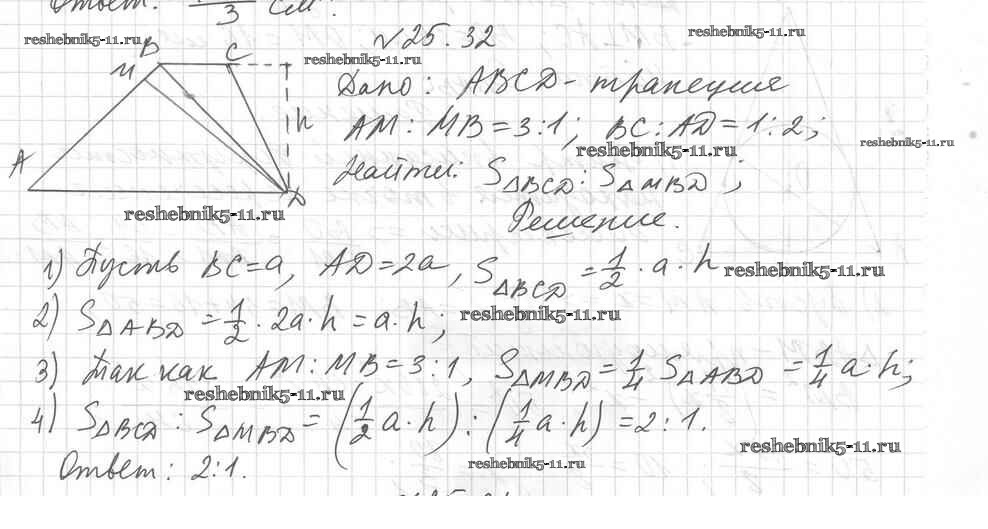 Ответ: 3 см².
reshebnik5-11.ru
№25.32
reshebnik5-11.ru
reshebnik5-11.ru
B C
M
h
A
D
Дано: ABCD - трапеция
AM : MB = 3:1; BC : AD = 1:2;
reshebnik5-11.ru
reshebnik5-11.ru
Найти: S△BCD : S△MBD;
reshebnik5-11.ru
Решение.
1) Пусть BC=a, AD=2a, S△BCD = 1/2 · a · h
reshebnik5-11.ru
2) S△ABD = 1/2 · 2a · h = a · h;
reshebnik5-11.ru
3) Так как AM : MB = 3:1, S△MBD = 1/4 S△ABD = 1/4 a · h;
reshebnik5-11.ru
4) S△BCD : S△MBD = (1/2 a · h) : (1/4 a · h) = 2:1.
reshebnik5-11.ru
Ответ: 2:1.
reshebnik5-11.ru